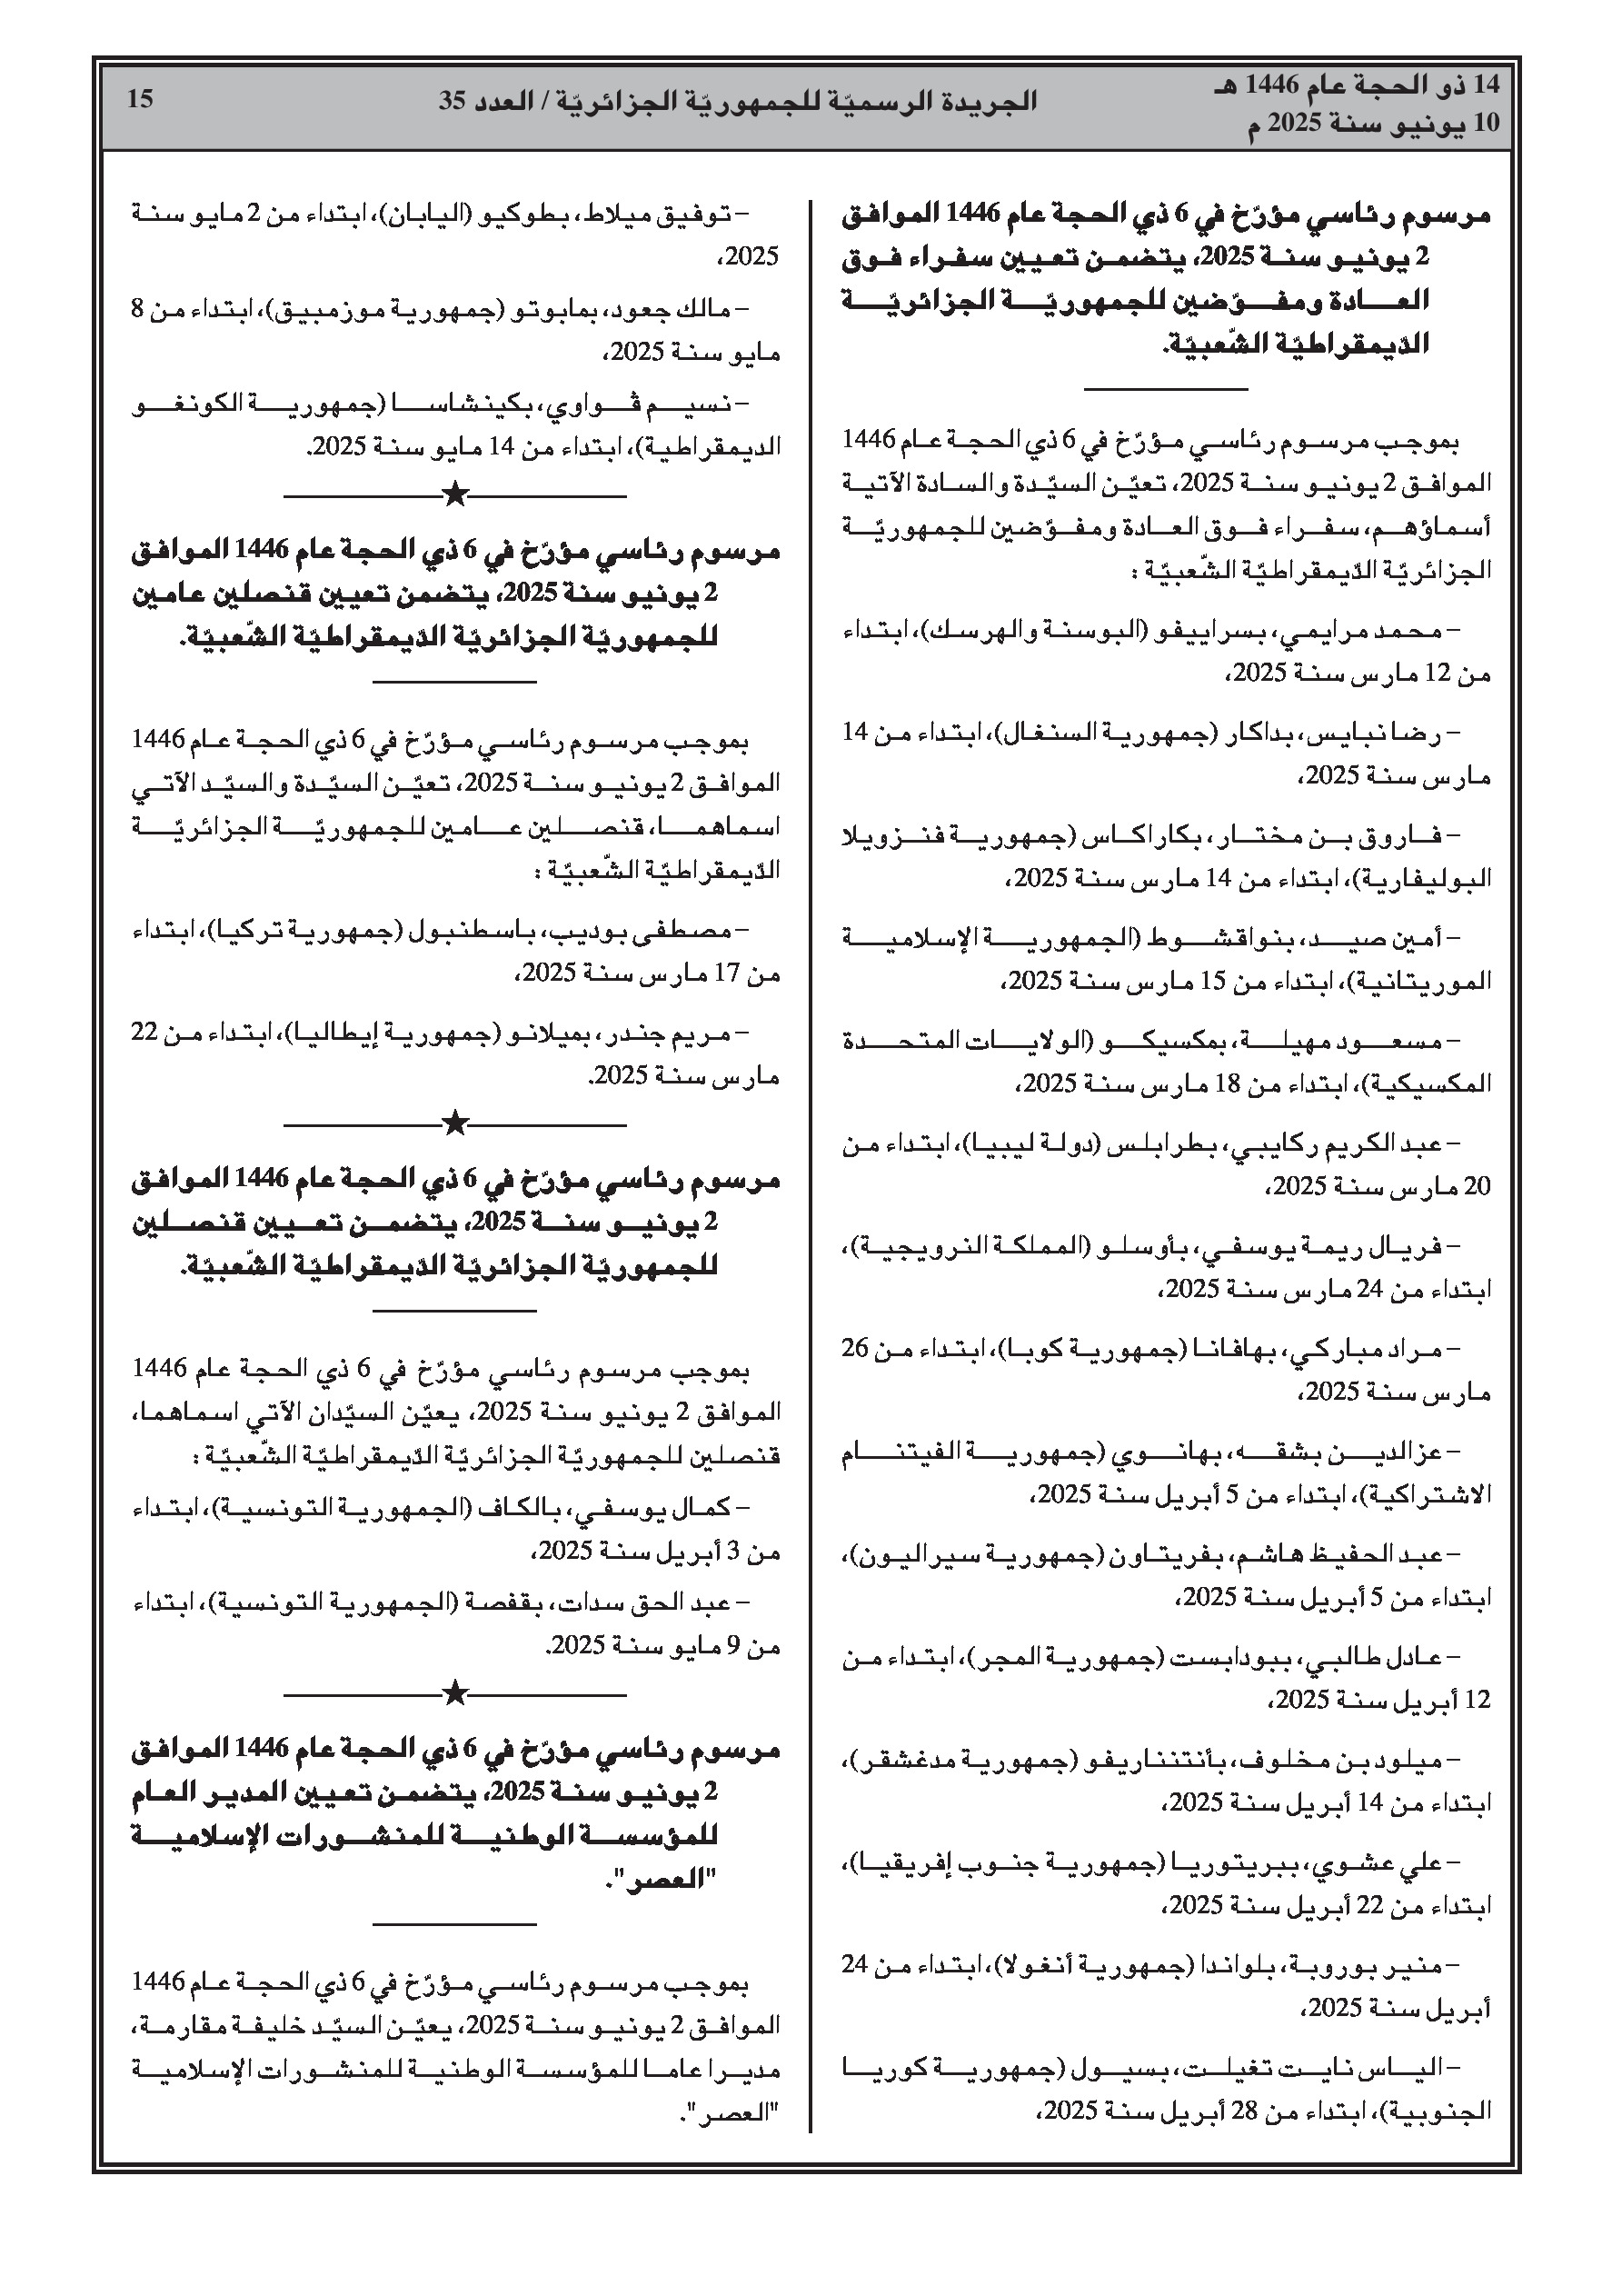 14 ذو الحجة عام 1446 هـ
10 يونيو سنة 2025 م
الجريدة الرسميّة للجمهوريّة الجزائريّة / العدد 35
15
مرسوم رئاسي مؤرّخ في 6 ذي الحجة عام 1446 الموافق
2 يونيو سنة 2025، يتضمن تعيين سفراء فوق
العادة ومفوّضين للجمهوريّة الجزائريّة
الدّيمقراطيّة الشّعبيّة.
بموجب مرسوم رئاسي مؤرّخ في 6 ذي الحجة عام 1446
الموافق 2 يونيو سنة 2025، تعيّن السيّدة والسادة الآتية
أسماؤهم، سفراء فوق العادة ومفوّضين للجمهوريّة
الجزائريّة الدّيمقراطيّة الشّعبيّة :
– محمد مرايمي، بسراييفو (البوسنة والهرسك)، ابتداء
من 12 مارس سنة 2025،
– رضا نبايس، بداكار (جمهورية السنغال)، ابتداء من 14
مارس سنة 2025،
– فاروق بن مختار، بكاراكاس (جمهورية فنزويلا
البوليفارية)، ابتداء من 14 مارس سنة 2025،
– أمين صيد، بنواقشوط (الجمهورية الإسلامية
الموريتانية)، ابتداء من 15 مارس سنة 2025،
– مسعود مهيلة، بمكسيكو (الولايات المتحدة
المكسيكية)، ابتداء من 18 مارس سنة 2025،
– عبد الكريم ركايبي، بطرابلس (دولة ليبيا)، ابتداء من
20 مارس سنة 2025،
– فريال ريمة يوسفي، بأوسلو (المملكة النرويجية)،
ابتداء من 24 مارس سنة 2025،
– مراد مباركي، بهافانا (جمهورية كوبا)، ابتداء من 26
مارس سنة 2025،
– عزالدين بشقه، بهانوي (جمهورية الفيتنام
الاشتراكية)، ابتداء من 5 أبريل سنة 2025،
– عبد الحفيظ هاشم، بفريتاون (جمهورية سيراليون)،
ابتداء من 5 أبريل سنة 2025،
– عادل طالبي، ببودابست (جمهورية المجر)، ابتداء من
12 أبريل سنة 2025،
– ميلود بن مخلوف، بأنتنناريفو (جمهورية مدغشقر)،
ابتداء من 14 أبريل سنة 2025،
– علي عشوي، ببريتوريا (جمهورية جنوب إفريقيا)،
ابتداء من 22 أبريل سنة 2025،
– منير بوروبة، بلواندا (جمهورية أنغولا)، ابتداء من 24
أبريل سنة 2025،
– الياس نايت تغيلت، بسيول (جمهورية كوريا
الجنوبية)، ابتداء من 28 أبريل سنة 2025،
– توفيق ميلاط، بطوكيو (اليابان)، ابتداء من 2 مايو سنة
2025،
– مالك جعود، بمابوتو (جمهورية موزمبيق)، ابتداء من 8
مايو سنة 2025،
– نسيم ڤواوي، بكينشاسا (جمهورية الكونغو
الديمقراطية)، ابتداء من 14 مايو سنة 2025.
مرسوم رئاسي مؤرّخ في 6 ذي الحجة عام 1446 الموافق
2 يونيو سنة 2025، يتضمن تعيين قنصلين عامين
للجمهوريّة الجزائريّة الدّيمقراطيّة الشّعبيّة.
بموجب مرسوم رئاسي مؤرّخ في 6 ذي الحجة عام 1446
الموافق 2 يونيو سنة 2025، تعيّن السيّدة والسيّد الآتي
اسماهما، قنصلين عامين للجمهوريّة الجزائريّة
الدّيمقراطيّة الشّعبيّة :
– مصطفى بوديب، باسطنبول (جمهورية تركيا)، ابتداء
من 17 مارس سنة 2025،
– مريم جندر، بميلانو (جمهورية إيطاليا)، ابتداء من 22
مارس سنة 2025.
مرسوم رئاسي مؤرّخ في 6 ذي الحجة عام 1446 الموافق
2 يونيو سنة 2025، يتضمن تعيين قنصلين
للجمهوريّة الجزائريّة الدّيمقراطيّة الشّعبيّة.
بموجب مرسوم رئاسي مؤرّخ في 6 ذي الحجة عام 1446
الموافق 2 يونيو سنة 2025، يعيّن السيّدان الآتي اسماهما،
قنصلين للجمهوريّة الجزائريّة الدّيمقراطيّة الشّعبيّة :
– كمال يوسفي، بالكاف (الجمهورية التونسية)، ابتداء
من 3 أبريل سنة 2025،
– عبد الحق سدات، بقفصة (الجمهورية التونسية)، ابتداء
من 9 مايو سنة 2025.
مرسوم رئاسي مؤرّخ في 6 ذي الحجة عام 1446 الموافق
2 يونيو سنة 2025، يتضمن تعيين المدير العام
للمؤسسة الوطنية للمنشورات الإسلامية
"العصر".
بموجب مرسوم رئاسي مؤرّخ في 6 ذي الحجة عام 1446
الموافق 2 يونيو سنة 2025، يعيّن السيّد خليفة مقارمة،
مديرا عاما للمؤسسة الوطنية للمنشورات الإسلامية
"العصر".